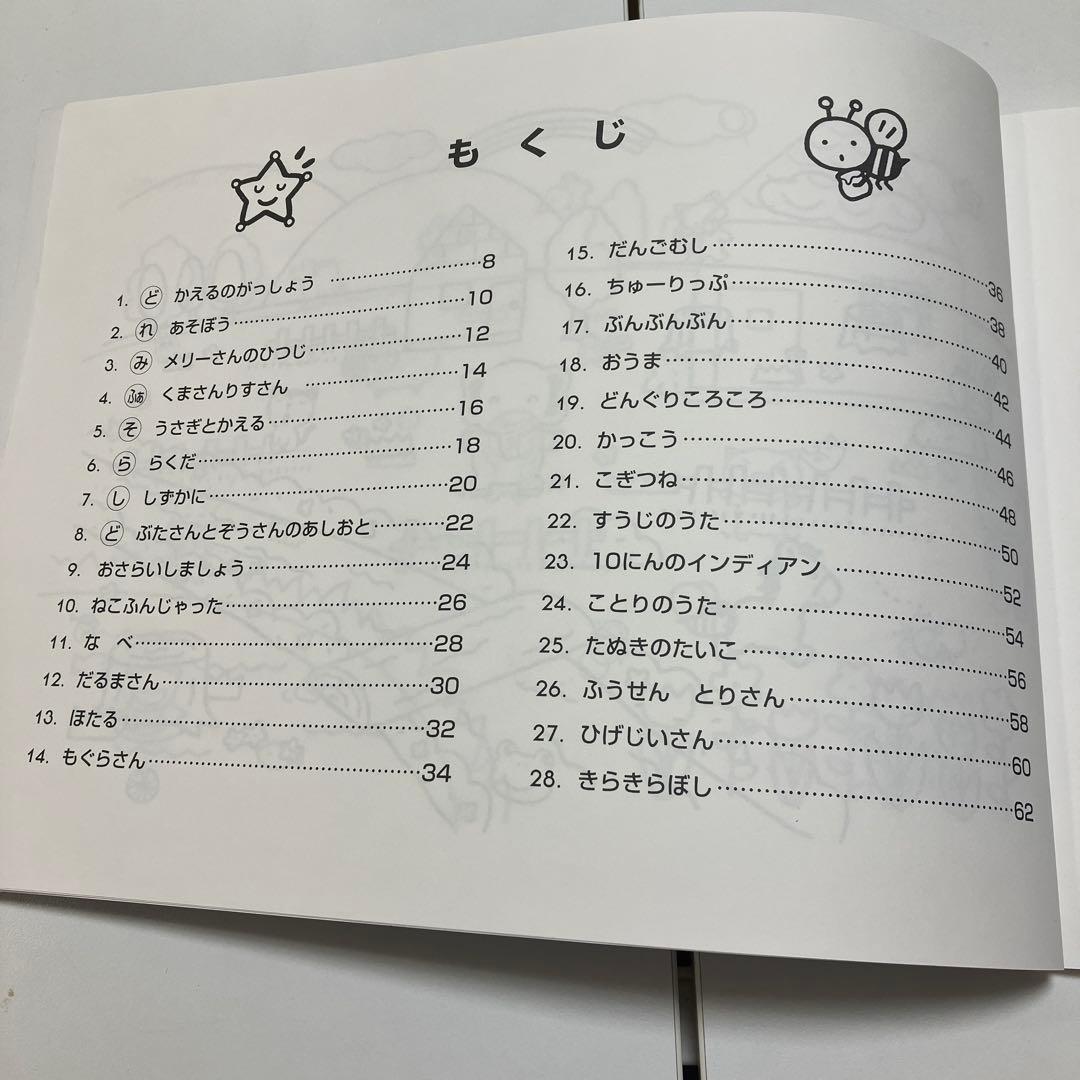 もくじ
1. ど かえるのがっしょう ……………………8
2. れ あそぼう……………………10
3. み メリーさんのひつじ……………………12
4. ふぁ くまさんりすさん ……………………14
5. そ うさぎとかえる……………………16
6. ら らくだ……………………18
7. し しずかに……………………20
8. ど ぶたさんとぞうさんのあしおと…………22
9. おさらいしましょう……………………24
10. ねこふんじゃった……………………26
11. な べ……………………28
12. だるまさん……………………30
13. ほたる……………………32
14. もぐらさん……………………34
15. だんごむし……………………36
16. ちゅーりっぷ……………………38
17. ぶんぶんぶん……………………40
18. おうま……………………42
19. どんぐりころころ……………………44
20. かっこう……………………46
21. こぎつね……………………48
22. すうじのうた……………………50
23. 10にんのインディアン ……………………52
24. ことりのうた……………………54
25. たぬきのたいこ……………………56
26. ふうせん とりさん……………………58
27. ひげじいさん……………………60
28. きらきらぼし……………………62